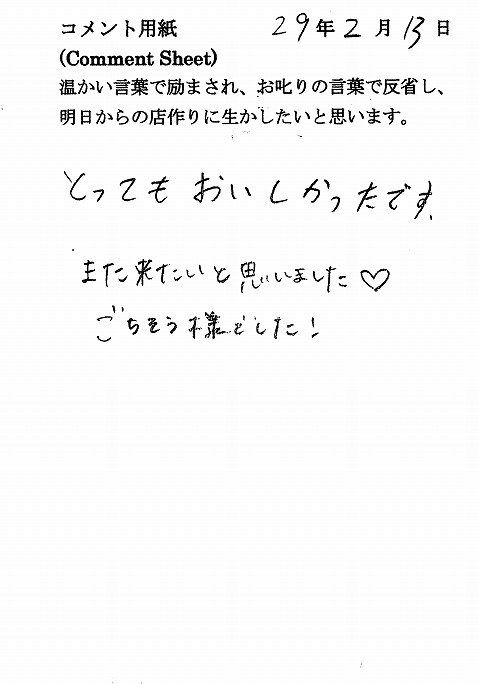 コメント用紙 29年2月13日
(Comment Sheet)
温かい言葉で励まされ、お叱りの言葉で反省し、
明日からの店作りに生かしたいと思います。
とってもおいしかったです。
また来たいと思いました♡
ごちそう様でした!